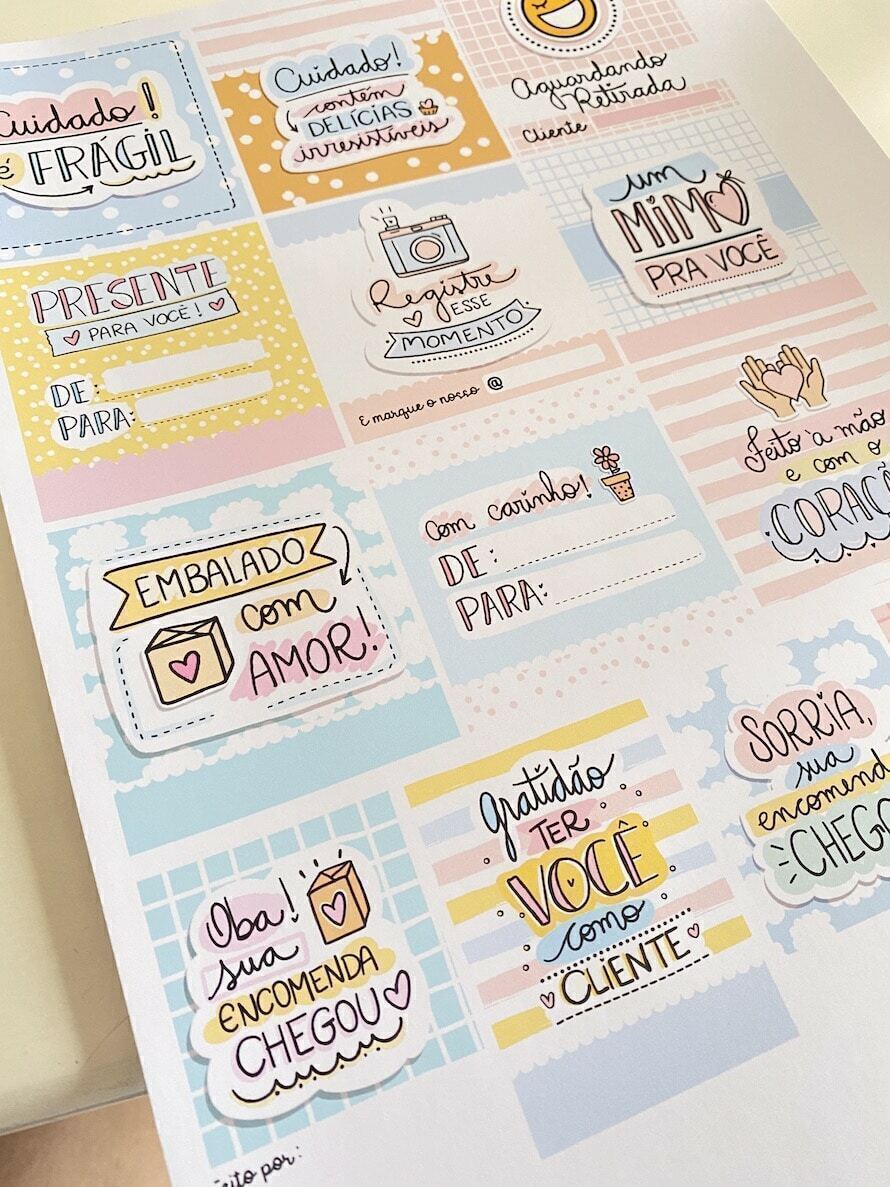 Cuidado!
é FRÁGIL
Cuidado!
contém
DELÍCIAS
irresistíveis
Aguardando
Retirada
Cliente
PRESENTE
PARA VOCÊ!
DE:
PARA:
Registre
ESSE
MOMENTO
E marque o nosso @
um
MIMO
PRA VOCÊ
EMBALADO
com
AMOR!
com carinho!
DE:
PARA:
Feito à mão
e com o
CORAÇÃ
Oba!
sua
ENCOMENDA
CHEGOU
gratidão
TER
VOCÊ
como
CLIENTE
SORRIA,
sua
encomend
CHEGO
feito por: